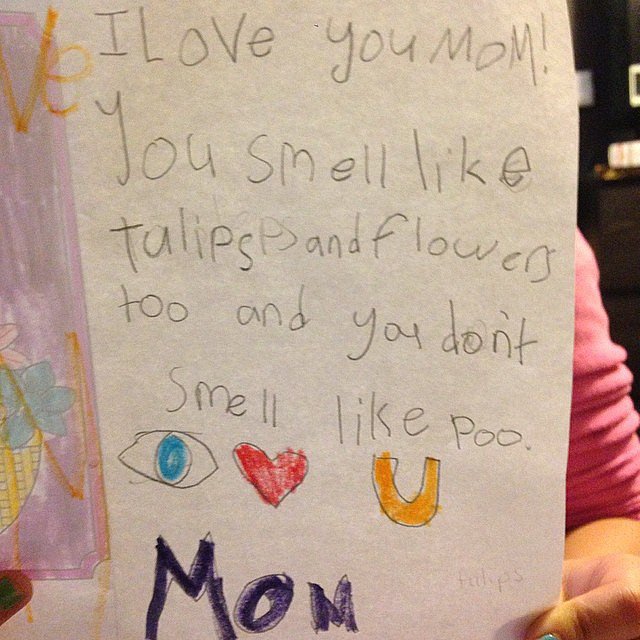 I Love you MOM!
You smell like
tulips ps and flowers
too and you don't
smell like poo.
U
Mom
tulips
ve